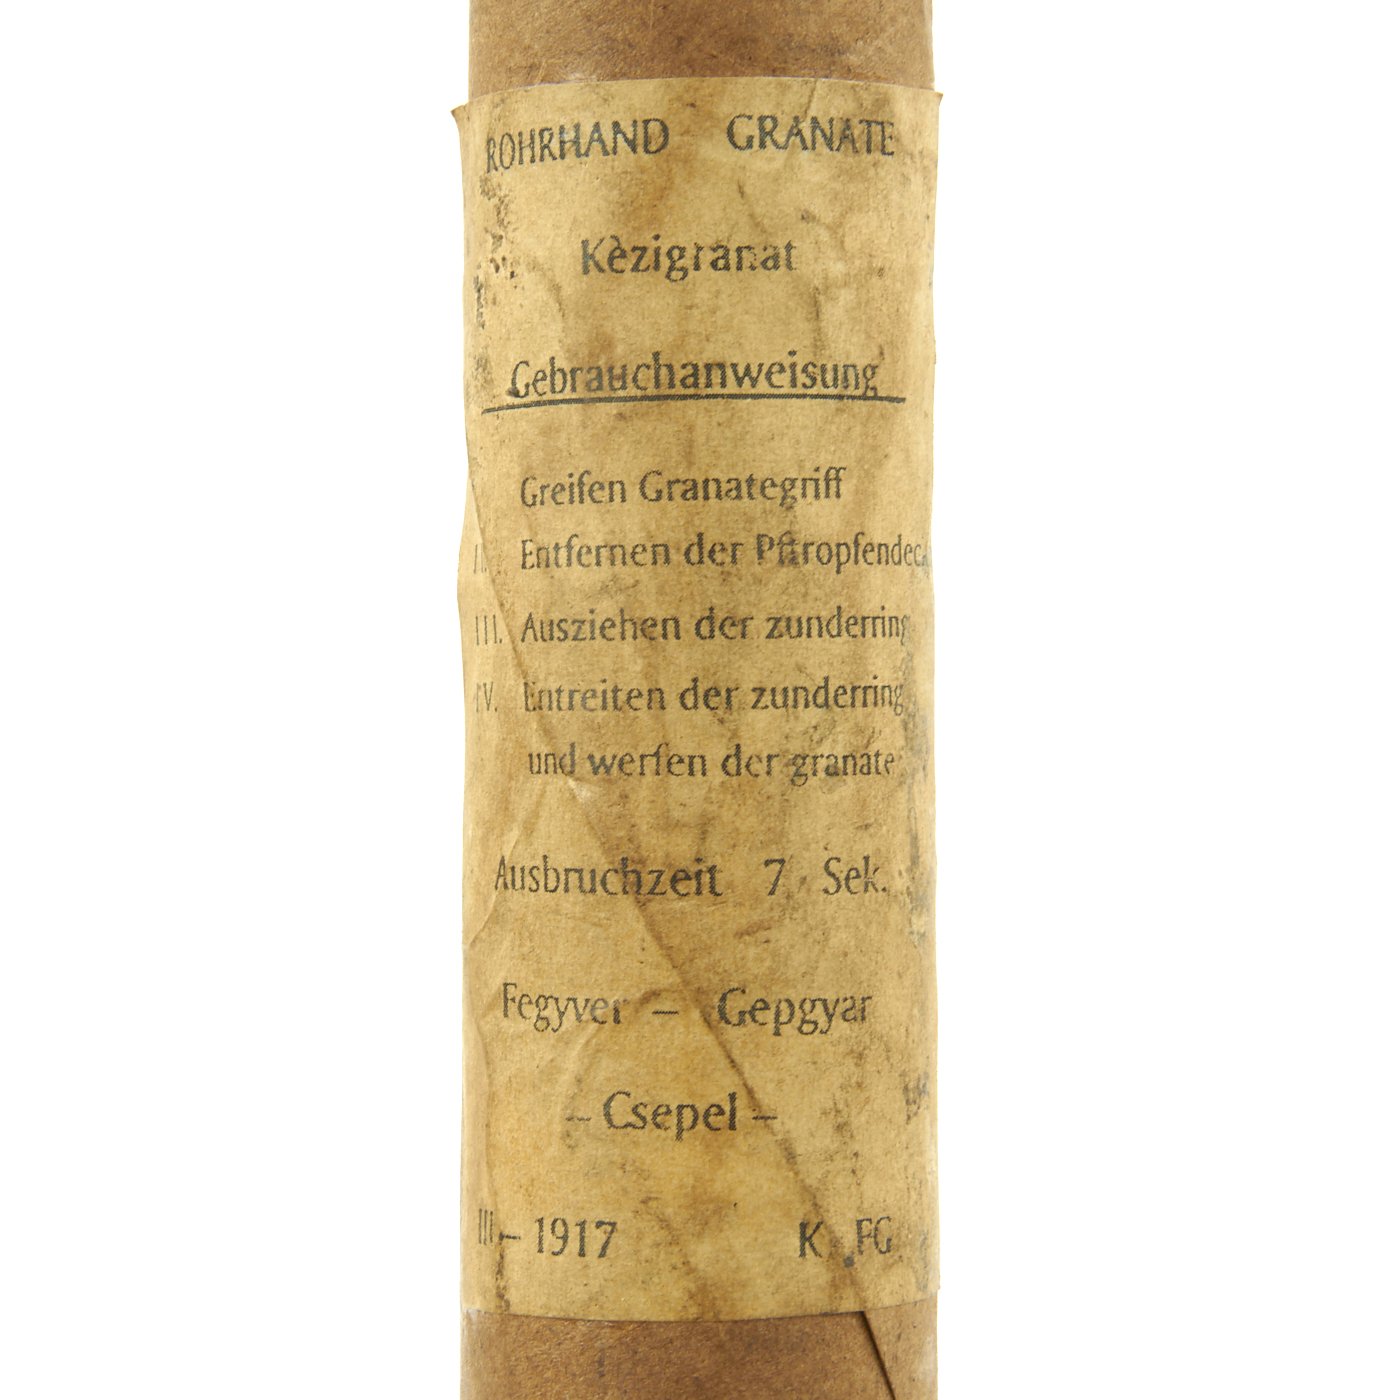 ROHRHAND GRANATE
Kèzigranat
Gebrauchanweisung
Greifen Granategriff
II. Entfernen der
III. Ausziehen der zunderring
IV. Entreiten der zunderring
und werfen der granate
Ausbruchzeit 7 Sek.
Fegyver – Gepgyar
– Csepel –
III – 1917 K . FG